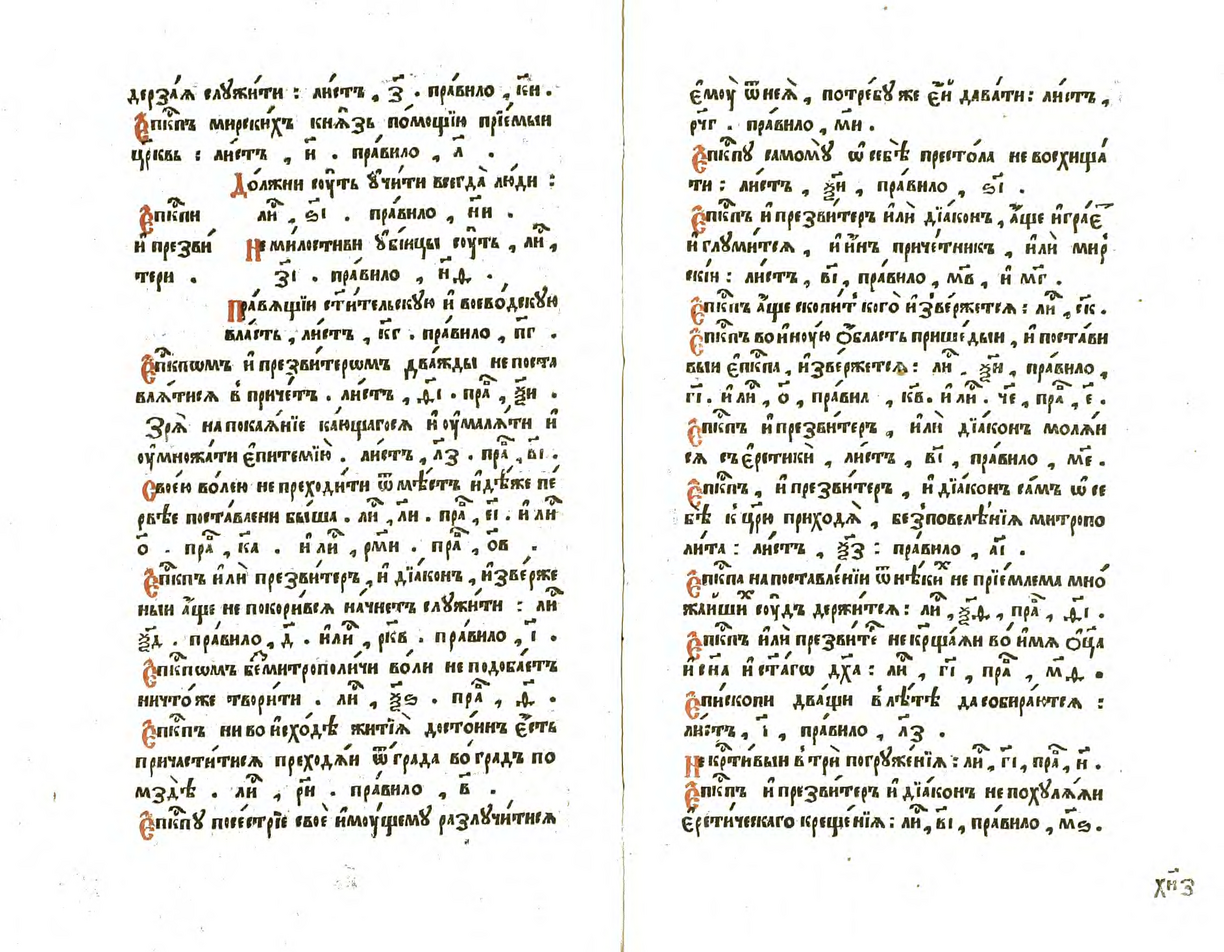 дерза́ѧ слꙋжи́ти : ли́стъ , з҃ . пра́вило , к҃и .
Є҆пⷭ҇кпъ мирски́хъ кнѧ́зь по́мощїю прїе́мыи
цр҃квь : ли́стъ , и҃ . пра́вило , л҃ .
До́лжни сꙋ́ть ᲂу҆чи́ти всегда̀ лю́ди :
Є҆пⷭ҇кпи лиⷭ҇ , ѕ҃і . пра́вило , н҃и .
и҆ презви́ Немл҇тиви ᲂу҆бі́йцы сꙋ́ть , лиⷭ҇ ,
тери . з҃і . пра́вило , н҃д .
Пра́вѧщїи ст҃и́тельскꙋю и҆ воево́дскꙋю
вла́сть , ли́стъ , к҃г . пра́вило , п҃г .
Є҆пⷭ҇кпѡмъ и҆ презви́терѡмъ два́жды не поста
влѧ́тисѧ в приче́тъ . ли́стъ , д҃і . праⷡ҇ , ѯ҃и .
Зрѧ̀ на покаѧ́нїе ка́ющагосѧ и҆ ᲂу҆малѧ́ти и҆
ᲂу҆множа́ти є҆питемі́ю . ли́стъ , л҃з . праⷡ҇ , в҃і .
Свое́ю во́лею не преходи́ти ѿ мѣ́стъ и҆дѣ́же пе
рвѣе поста́влени бы́ша . лиⷭ҇ , л҃и . праⷡ҇ , є҃і . и҆ лиⷭ҇
о҃ . праⷡ҇ , к҃а . и҆ лиⷭ҇ , рм҃и . праⷡ҇ , о҃в .
Є҆пⷭ҇кпъ и҆лѝ презви́теръ , и҆ дїа́конъ , и҆зве́рже
ныи а҆́ще не покори́всѧ на́чнетъ слꙋжи́ти : лиⷭ҇
ѯ҃д . пра́вило , д҃ . и҆ лиⷭ҇ , рк҃в . пра́вило , і҃ .
Є҆пⷭ҇кпѡмъ беⷥ митрополи́чи во́ли не подоба́етъ
ничто́же твори́ти . лиⷭ҇ , ѯ҃ѕ . праⷡ҇ , д҃ .
Є҆пⷭ҇кпъ ни во и҆схо́дѣ житїѧ̀ досто́инъ є҆́сть
причасти́тисѧ преходѧ́и ѿ гра́да во́ градъ по
мздѣ̀ . лиⷭ҇ , р҃и . пра́вило , в҃ .
Є҆пⷭ҇кпꙋ посестрїе своѐ и҆мꙋ́щемꙋ разлꙋчи́тисѧ
є҆мꙋ̀ ѿ неѧ̀ , потре́бꙋ же є҆́и дава́ти : ли́стъ ,
рч҃г . пра́вило , м҃и .
Є҆пⷭ҇кпꙋ самомꙋ̀ ѡ҆ себѣ̀ престо́ла не восхища́
ти : ли́стъ , ѯ҃и , пра́вило , ѕ҃і .
Є҆пⷭ҇кпъ и҆ презви́теръ и҆лѝ дїа́конъ , а҆́ще и҆гра́еⷮ
и҆ глꙋми́тсѧ , и҆ и҆́нъ приче́тникъ , и҆лѝ миⷬ
скі́и : ли́стъ , в҃і , пра́вило , м҃в , и҆ м҃г .
Є҆пⷭ҇кпъ а҆́ще скопи́т кого̀ и҆зве́ржетсѧ : лиⷭ҇ , с҃к .
Є҆пⷭ҇кпъ во и҆нꙋ́ю ѻ҆́бласть прише́дыи , и҆ поста́ви
выи є҆пⷭ҇кпа , и҆зве́ржетсѧ : лиⷭ҇ . ѯ҃и , пра́вило ,
г҃і . и҆ лиⷭ҇ , о҃ , пра́вил , к҃в . и҆ лиⷭ҇ . ч҃е , праⷡ҇ , є҃ .
Є҆пⷭ҇кпъ и҆ презви́теръ , и҆лѝ дїа́конъ молѧ́и
сѧ съ є҆ретикѝ , ли́стъ , в҃і , пра́вило , м҃е .
Є҆пⷭ҇кпъ , и҆ презви́теръ , и҆ дїа́конъ са́мъ ѡ҆ се
бѣ̀ к цр҃ю̀ приходѧ̀ , без̾ повелѣ́нїѧ митропо
ли́та : ли́стъ , ѯ҃з : пра́вило , а҃і .
Є҆пⷭ҇кпа на поставле́нїи ѿ нѣ́киⷯ не прїе́млема мно́
жаишиⷯ сꙋ́дъ держи́тсѧ : лиⷭ҇ , ѯ҃д , праⷡ҇ , д҃і .
Є҆пⷭ҇кпъ и҆лѝ презви́теⷬ не крⷭ҇ща́ѧи во и҆́мѧ ѻ҆ц҃а̀
и҆ сн҃а и҆ ст҃а́гѡ дх҃а : лиⷭ҇ , г҃і , праⷡ҇ , м҃д .
Є҆пи́скопи два́щи в лѣ́тѣ да собира́ютсѧ :
ли́стъ , і҃ , пра́вило , л҃з .
Не крⷭ҇ти́выи в трѝ погрꙋже́нїѧ : лиⷭ҇ , г҃і , праⷡ҇ , н҃ .
Є҆пⷭ҇кпъ и҆ презви́теръ и҆ дїа́конъ не похꙋлѧ́ѧи
є҆рети́ческаго креще́нїѧ : лиⷭ҇ , в҃і , пра́вило , м҃ѕ .